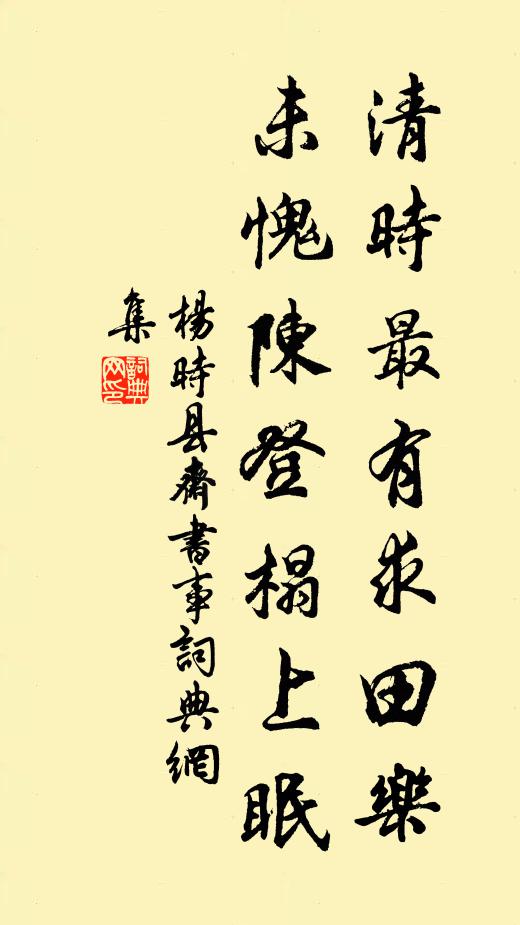 清時最有求田樂
未愧陳登榻上眠
楊時县齋書事詞典網
集
詞典
网印